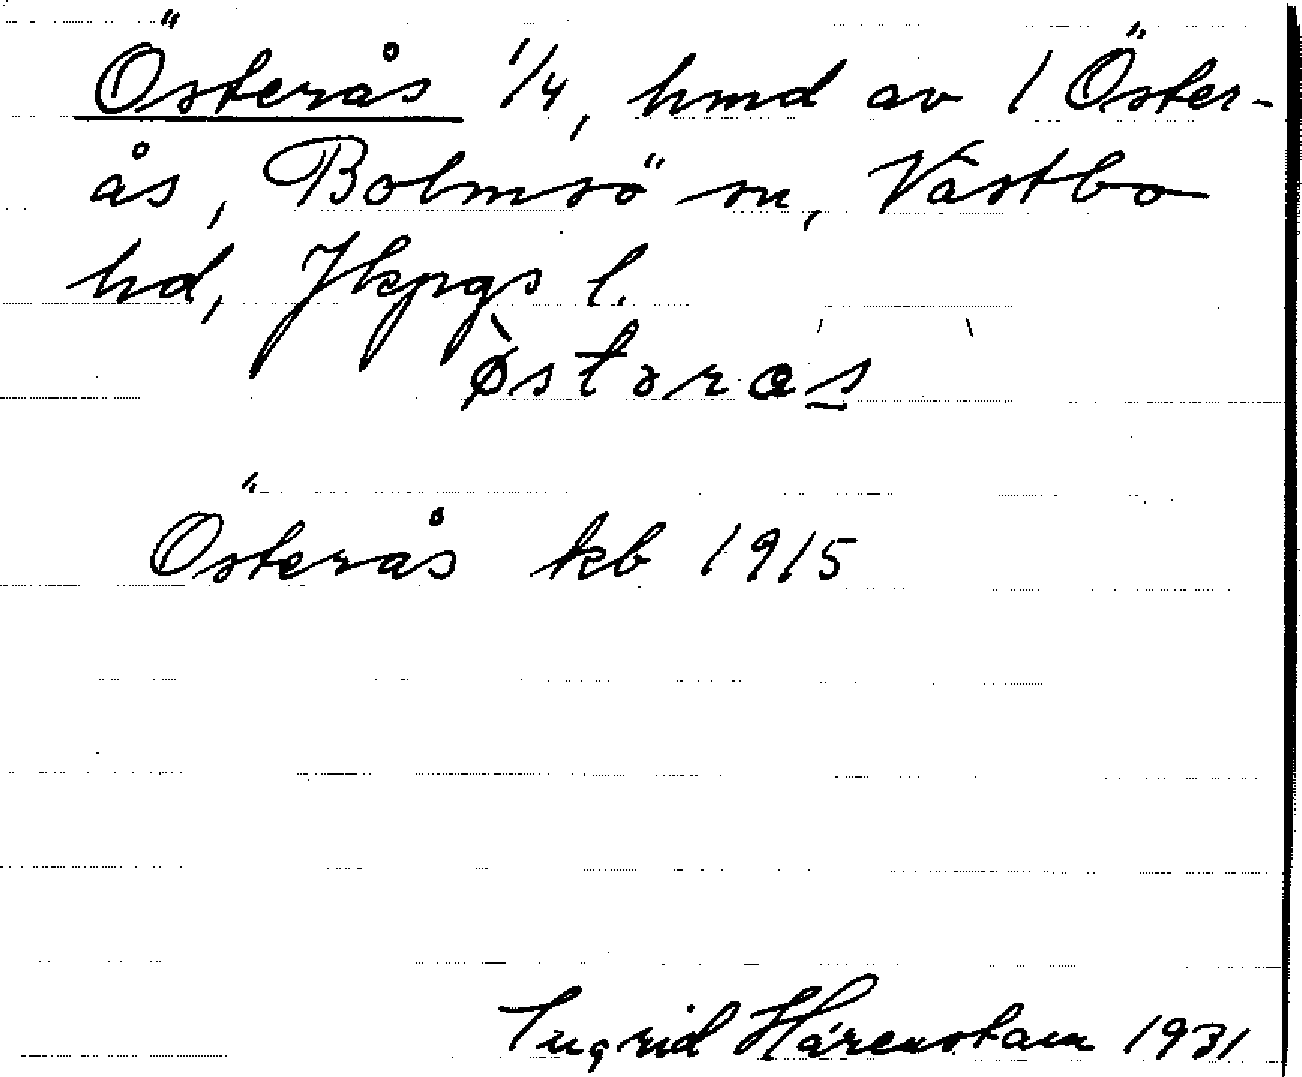 Österås 1/4, hmd av 1 Öster-
ås, Bolmsö sn, Västbo
hd, Jkpgs l.
östəras
Österås kb 1915
Ingrid Härenstam 1931